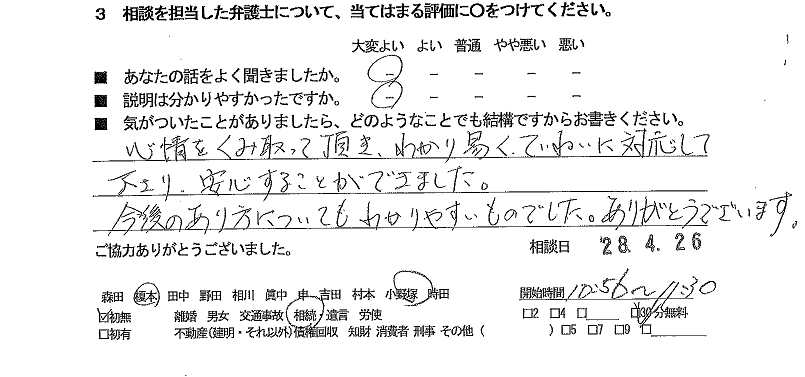 3 相談を担当した弁護士について、当てはまる評価に○をつけてください。
大変よい よい 普通 やや悪い 悪い
■ あなたの話をよく聞きましたか。 － － － － －
■ 説明は分かりやすかったですか。 － － － － －
■ 気がついたことがありましたら、どのようなことでも結構ですからお書きください。
心情をくみ取って頂き、わかり易く、ていねいに対応して
下さり、安心することができました。
今後のあり方についてもわかりやすいものでした。ありがとうございます。
ご協力ありがとうございました。 相談日 '28.4.26
森田 榎本 田中 野田 相川 眞中 申 吉田 村本 小野塚 時田 開始時間 10:56〜11:30
☑初無 離婚 男女 交通事故 相続・遺言 労使 □2 □4 □ □30分無料
□初有 不動産(建明・それ以外) 債権回収 知財 消費者 刑事 その他 ( ) □5 □7 □9 □